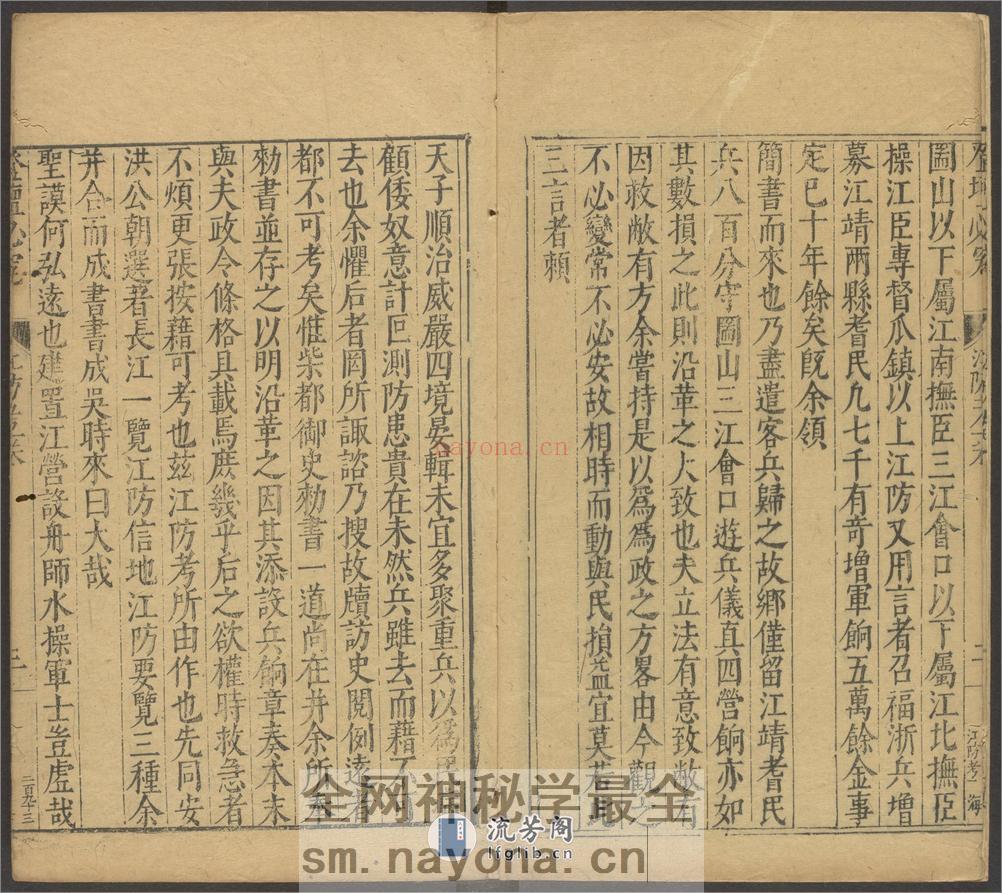 圌山以下屬江南撫臣三江會口以下屬江北撫臣
操江臣專督瓜鎮以上江防又用言者召福浙兵增
募江靖兩縣耆民九七千有奇增軍餉五萬餘金事
定巳十年餘矣旣余領
簡書而來也乃盡遣客兵歸之故鄉僅留江靖耆民
兵八百分守圌山三江會口遊兵儀真四營餉亦如
其數損之此則沿革之大致也夫立法有意致敝有
因救敝有方余嘗持是以爲爲政之方畧由今觀之
不必變常不必安故相時而動與民損益宜莫若此
三言者頼
天子順治威嚴四境晏輯未宜多聚重兵以爲
顧倭奴意計叵測防患貴在未然兵雖去而藉不
去也余懼后者罔所諏諮乃搜故牘訪史閱例遠者
都不可考矣惟柴都御史勑書一道尚在并余所
勑書並存之以明沿革之因其添設兵餉章奏本末
與夫政令條格具載焉庶幾乎后之欲權時救急者
不煩更張按藉可考也茲江防考所由作也先同安
洪公朝選著長江一覽江防信地江防要覽三種余
并合而成書書成吳時來曰大哉
聖謨何弘遠也建置江營設舟師水操軍士豈虛哉
登壇必究
江防考
二
江防考
海
登壇必究
江防考
三
二百九十三
nayona.cn
全网神秘学最全
流芳阁
lfglib.cn
sm.nayona.cn